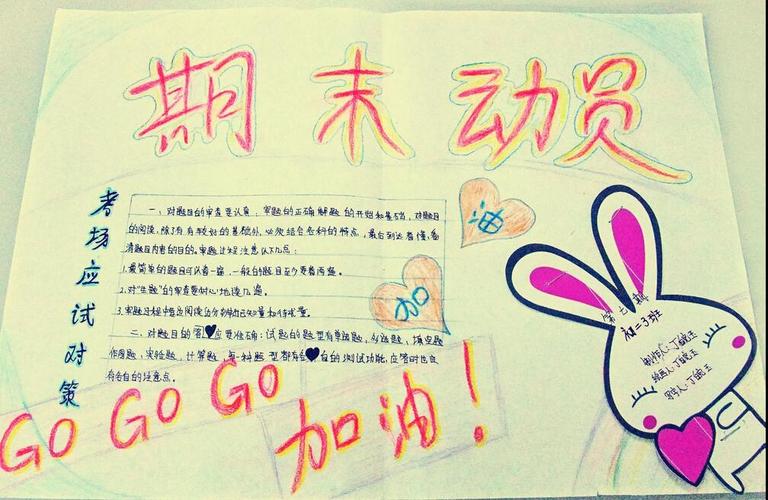 期末动员
考场应试对策
一、对题目的审查要认真：审题的正确解题的开始和基础，对题目
的阅读，除了有较好的基础外，必须结合各科的特点，最后到达看懂，看
清题目内容的目的。审题过程注意以下几点：
1.最简单的题目可以看一遍，一般的题目至少要看两遍。
2.对"生题"的审查要耐心地读几遍。
3.审题过程中应阅读分析出已知量和待求量。
二、对题目的答♥应要准确：试题的题型有单选题，多选题，填空题
作图题，实验题，计算题，每一种题型都有各♥自的测试功能，在答时也应
有各自的注意点。
油
加
第七期
初二3班
制作人：丁皖玉
绘画人：丁皖玉
GO GO GO
加油！